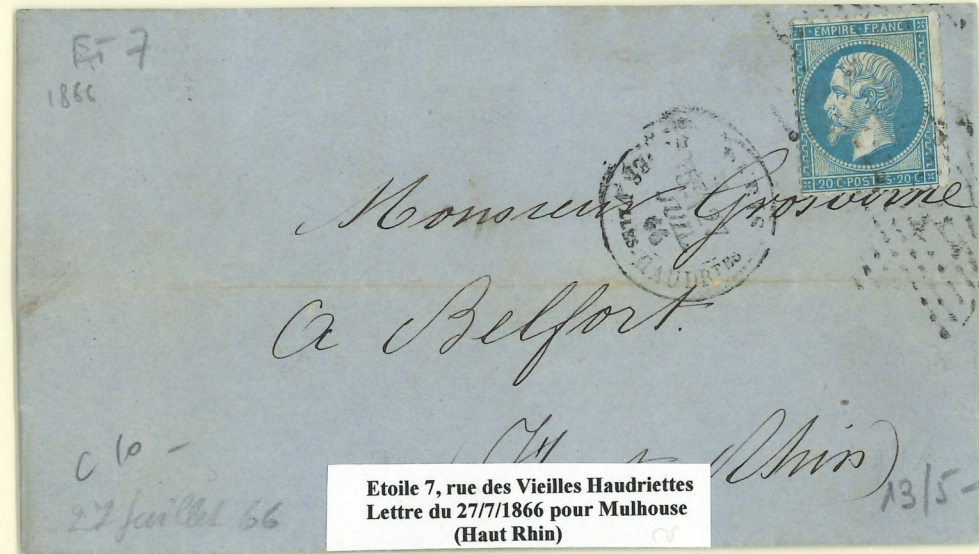 Et 7
1866
EMPIRE FRANC
20 C · POSTES · 20 C
PARIS
JUIL
66
HAUDRTES
Monsieur Grosborne
A Belfort.
(H Rhin)
C 10 -
27 juillet 66
13/5 -
Etoile 7, rue des Vieilles Haudriettes
Lettre du 27/7/1866 pour Mulhouse
(Haut Rhin)